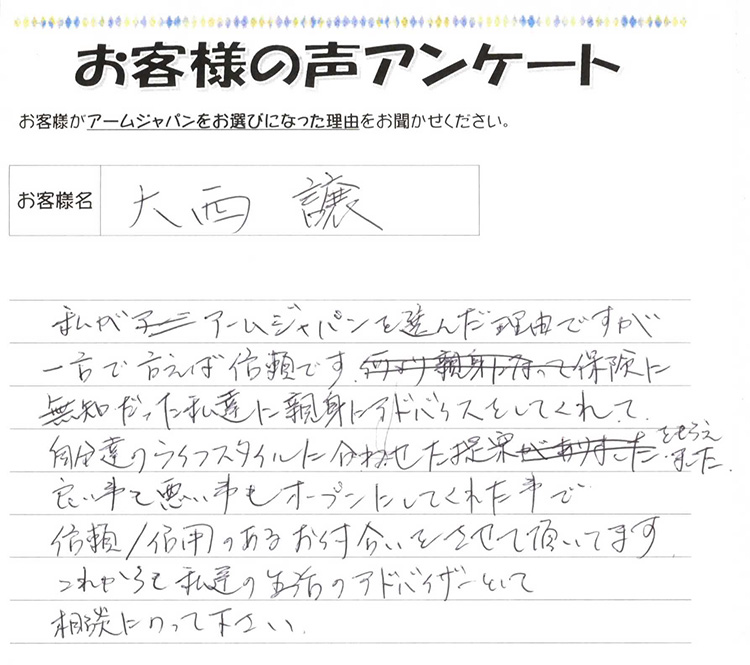 お客様の声アンケート
お客様がアームジャパンをお選びになった理由をお聞かせください。
お客様名
大西 譲
私が アームジャパンを選んだ理由ですが
一言で言えば信頼です。保険に
無知だった私達に親身にアドバイスをしてくれて、
自分達のライフスタイルに合わせた提案をもらえました。
良い事も悪い事もオープンにしてくれた事で
信頼/信用のあるお付合いをさせて頂いてます
これからも私達の生活のアドバイザーとして
相談にのって下さい。